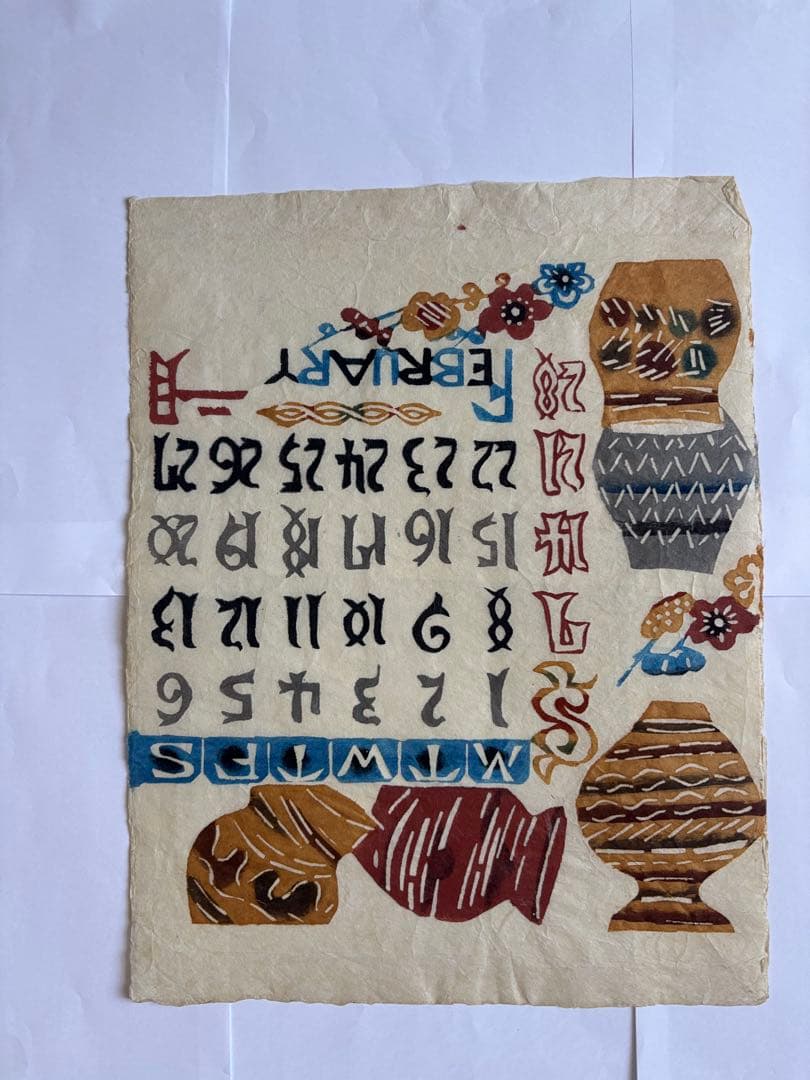 S M T W T F S
1 2 3 4 5 6
7 8 9 10 11 12 13
14 15 16 17 18 19 20
21 22 23 24 25 26 27
28 FEBRUARY